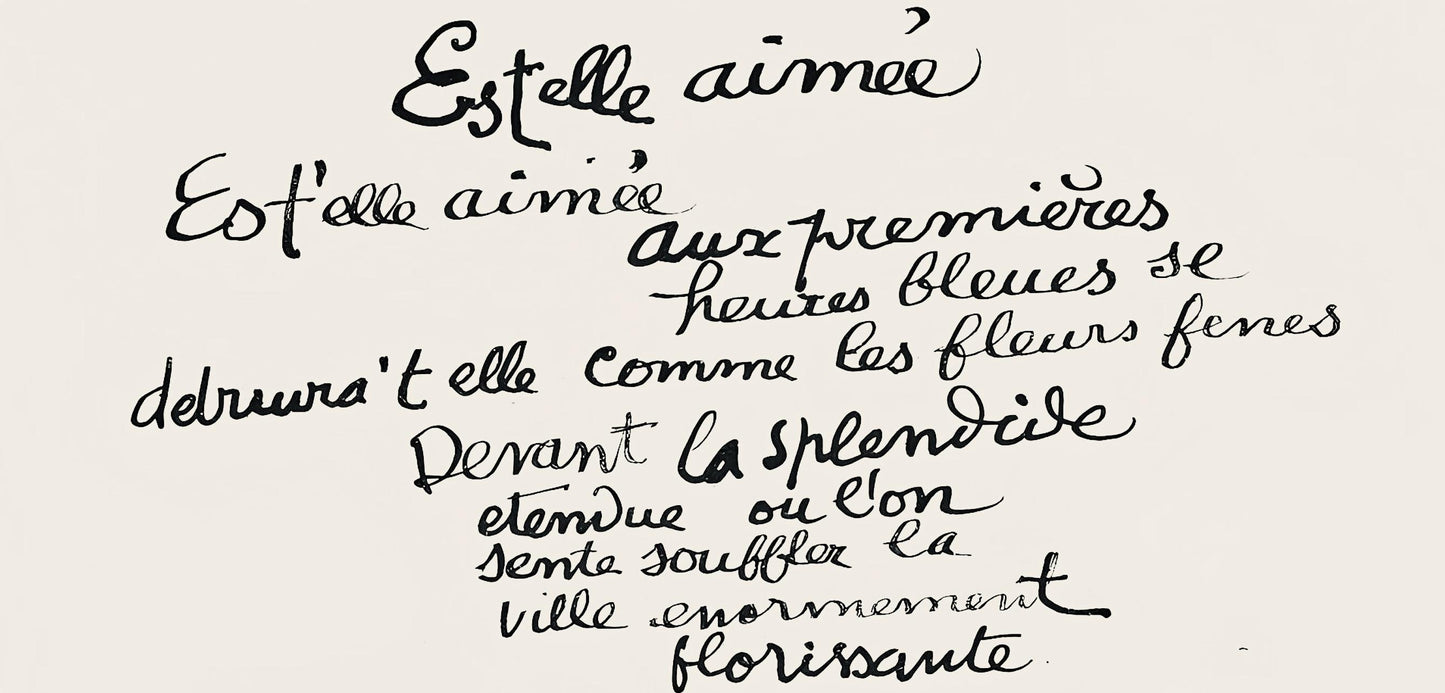 Estelle aimée
Est'elle aimée
aux premières
heures bleues se
detruira't elle comme les fleurs fenes
Devant la splendide
etendue ou l'on
sente souffler la
ville enormement
florissante